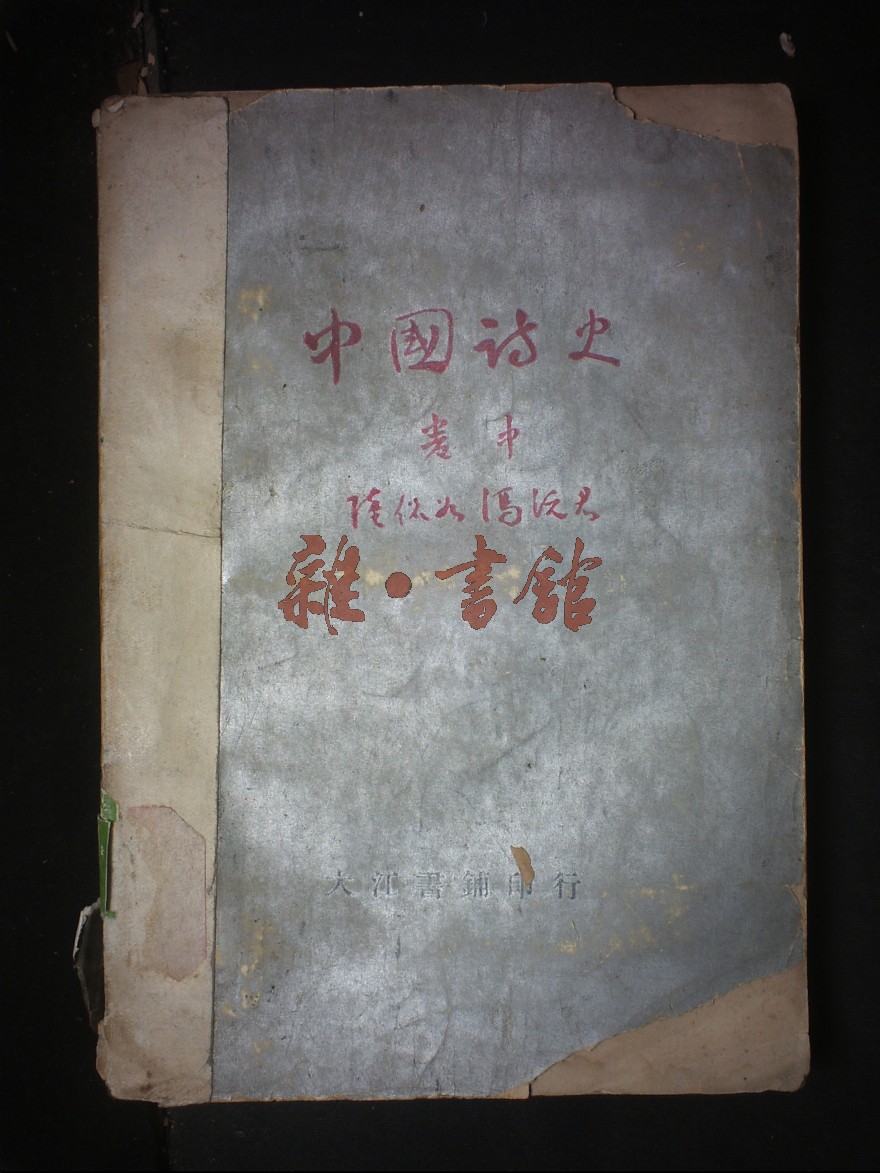 中國詩史
卷中
陸侃如 馮沅君
雜·書館
大江書鋪印行